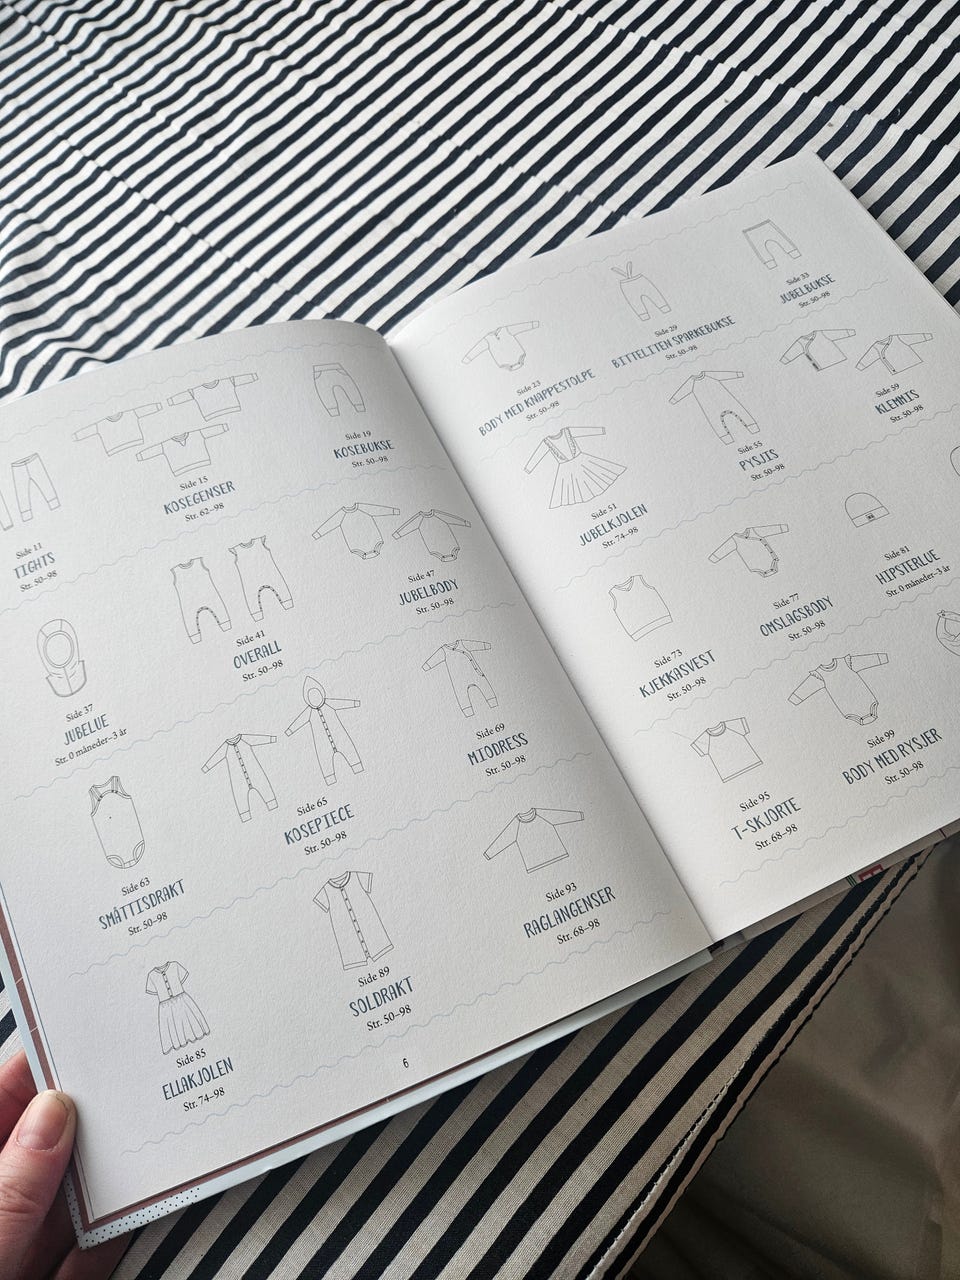 Side 11
TIGHTS
Str. 50–98
Side 15
KOSEGENSER
Str. 62–98
Side 19
KOSEBUKSE
Str. 50–98
Side 37
JUBELUE
Str. 0 måneder–3 år
Side 41
OVERALL
Str. 50–98
Side 47
JUBELBODY
Str. 50–98
Side 63
SMÅTTISDRAKT
Str. 50–98
Side 65
KOSEPIECE
Str. 50–98
Side 69
MIODRESS
Str. 50–98
Side 85
ELLAKJOLEN
Str. 74–98
Side 89
SOLDRAKT
Str. 50–98
Side 93
RAGLANGENSER
Str. 68–98
6
Side 23
BODY MED KNAPPESTOLPE
Str. 50–98
Side 29
BITTELITEN SPARKEBUKSE
Str. 50–98
Side 33
JUBELBUKSE
Str. 50–98
Side 51
JUBELKJOLEN
Str. 74–98
Side 55
PYSJIS
Str. 50–98
Side 59
KLEMMIS
Str. 50–98
Side 73
KJEKKASVEST
Str. 50–98
Side 77
OMSLAGSBODY
Str. 50–98
Side 81
HIPSTERLUE
Str. 0 måneder–3 år
Side 95
T-SKJORTE
Str. 68–98
Side 99
BODY MED RYSJER
Str. 50–98